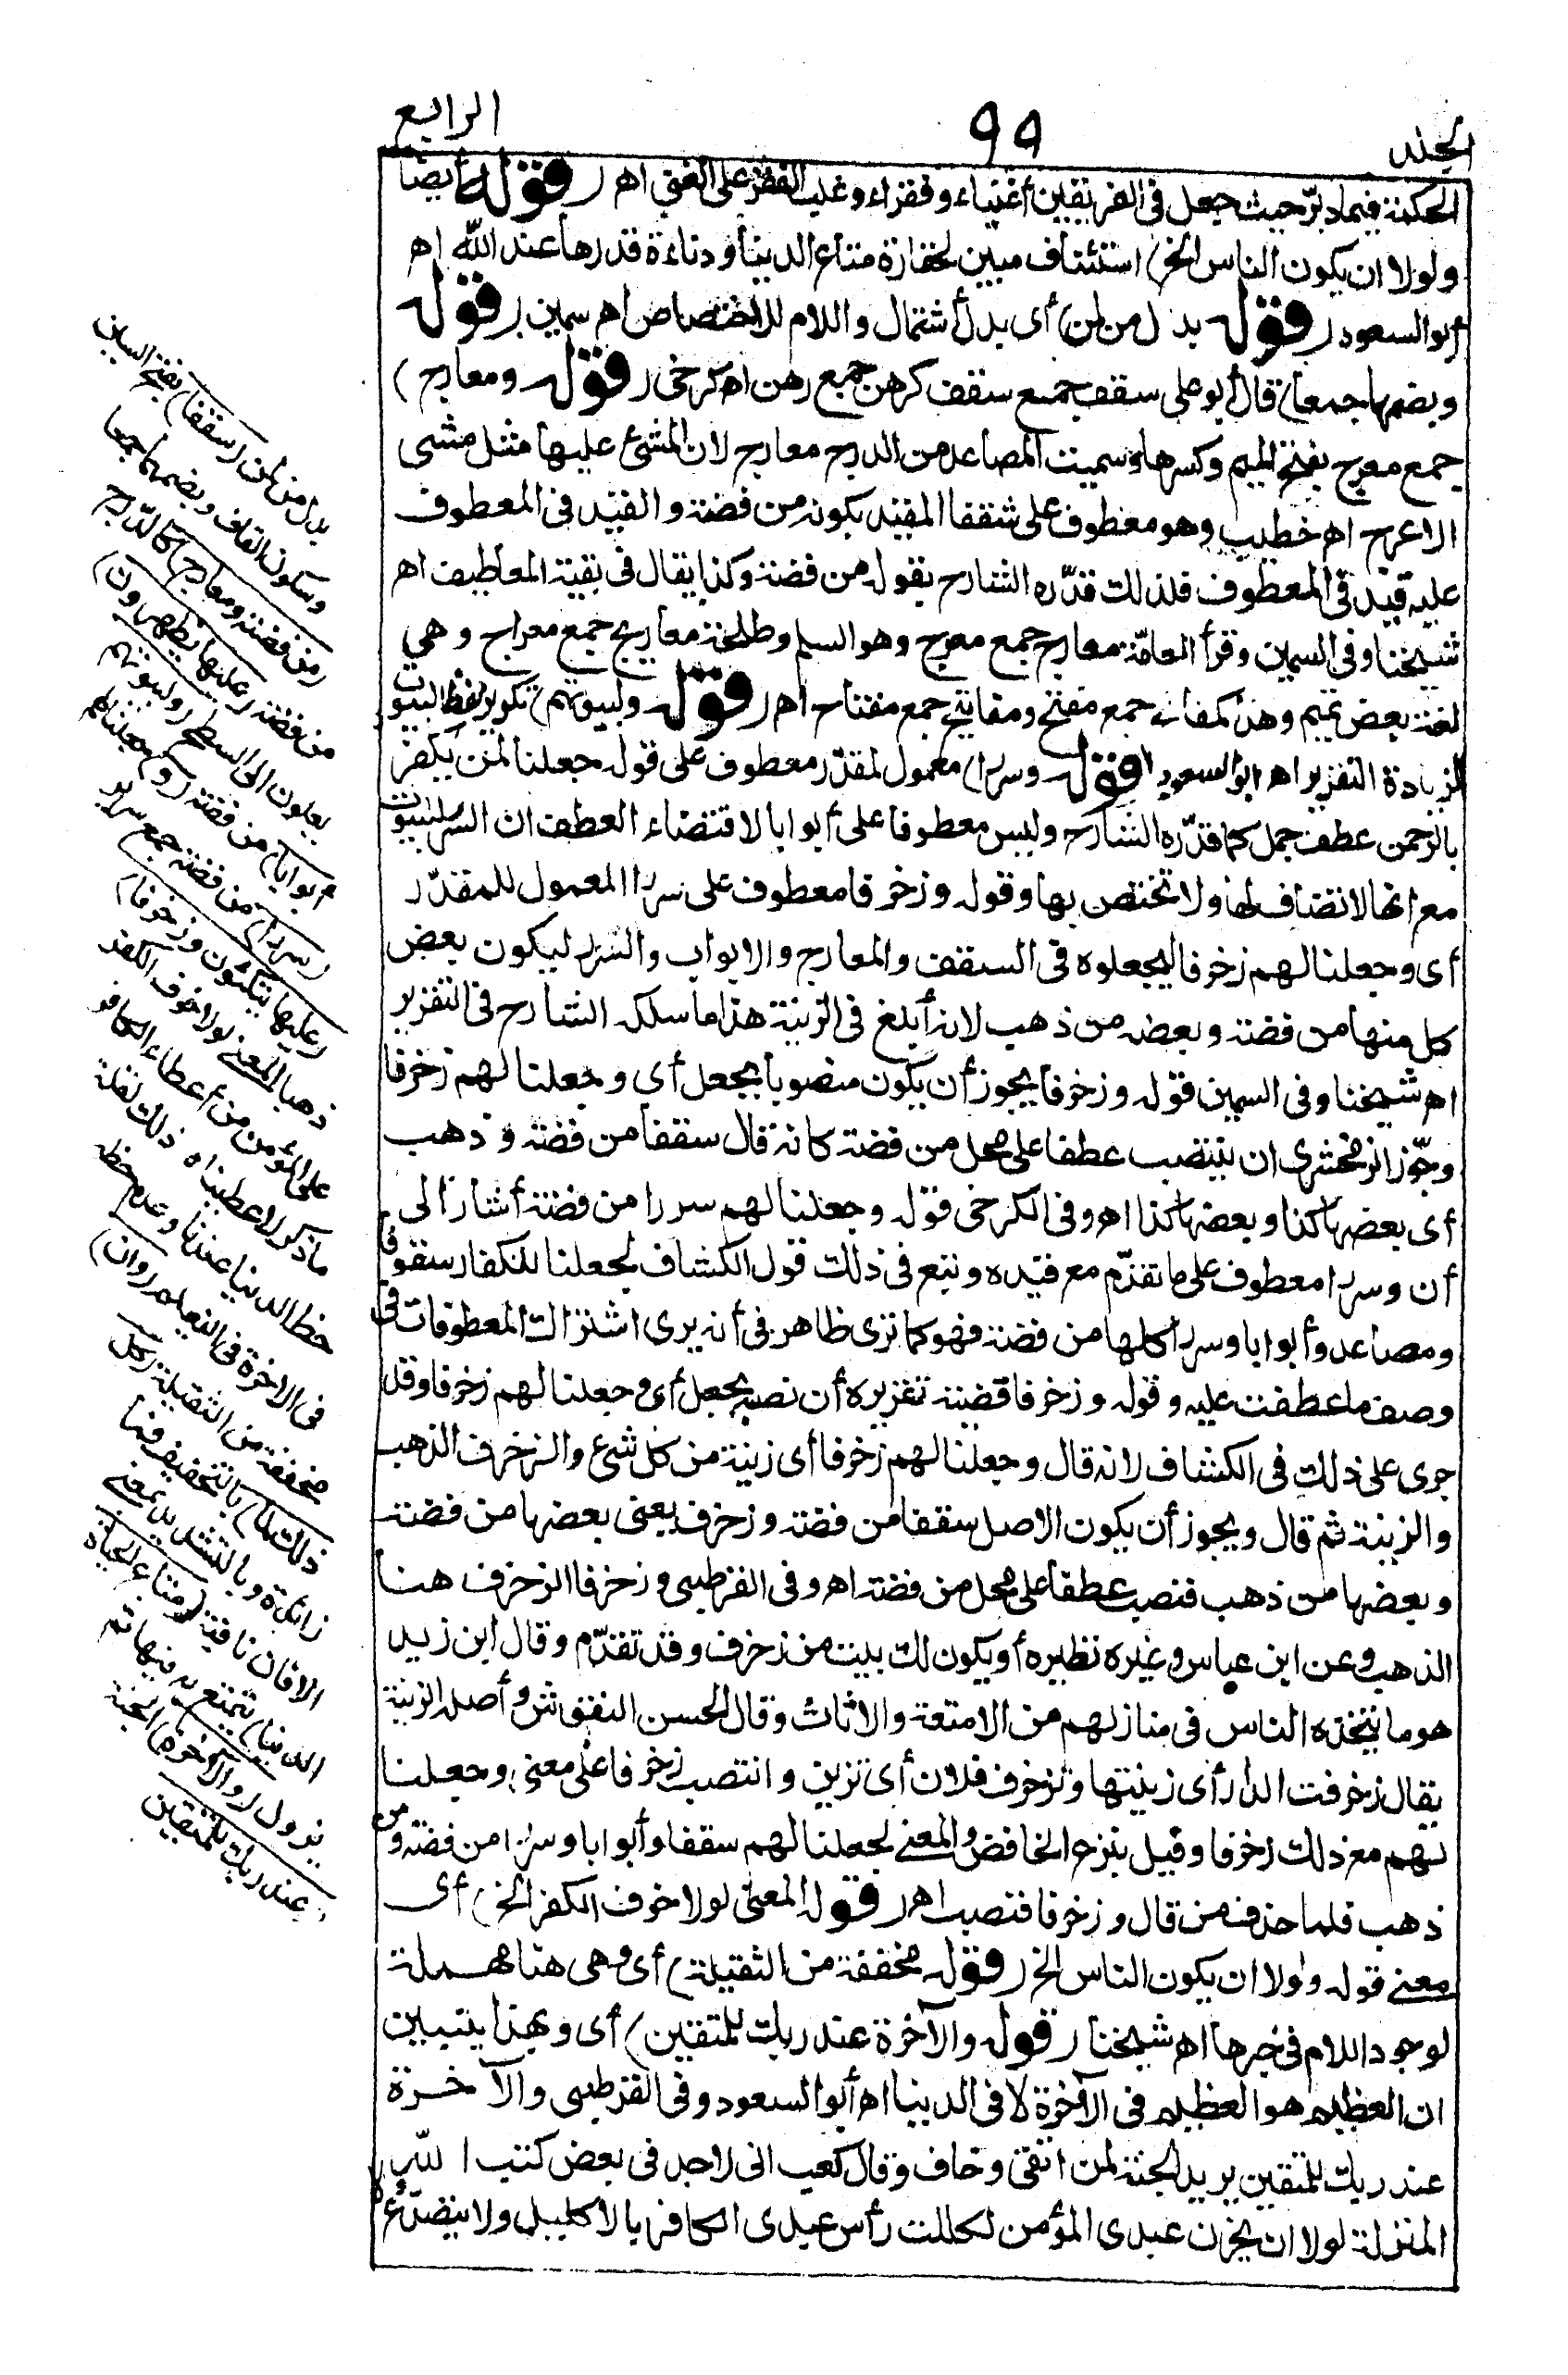 الجلد
٩٩
الرابع
الحكمة فيما دبّر حيث جعل فى الفريقين أغنياء وفقراء وغلب الفقر على الغنى اه (قوله أيضا
ولولا ان يكون الناس الخ) استئناف مبين لحقارة متاع الدنيا ودناءة قدرها عند الله اه
أبو السعود (قوله بدل من لمن) أى بدل أشتمال واللام للاختصاص اه سمين (قوله
وبضمهما جمعا) قال أبو على سقف جمع سقف كرهن جمع رهن اه كرخى (قوله ومعارج)
جمع معرج بفتح الميم وكسرها وسميت المصاعد من الدرج معارج لان المشئ عليها مثل مشى
الاعرج اه خطيب وهو معطوف على سقفا المقيد بكونه من فضة والقيد فى المعطوف
عليه قيد فى المعطوف فلذلك قدّره الشارح بقوله من فضة وكذا يقال فى بقية المعاطيف اه
شيخنا وفى السمين وقرأ العامّة معارج جمع معرج وهو السلم وطلحة معاريج جمع معراج وهى
لغة بعض تميم وهذا كمفاتح جمع مفتح ومفاتيح جمع مفتاح اه (قوله ولبيوتهم) تكرير لفظ البيوت
لزيادة التقرير اه ابو السعود (قوله وسررا) معمول لمقدّر معطوف على قوله جعلنا لمن يكفر
بالرحمن عطف جمل كما قدّره الشارح وليس معطوفا على أبوابا لاقتضاء العطف ان السرر للبيوت
مع انها لا تضاف لها ولا تختص بها وقوله وزخرفا معطوف على سررا المعمول للمقدّر
أى وجعلنا لهم زخرفا ليجعلوه فى السقف والمعارج والابواب والسرر ليكون بعض
كل منها من فضة وبعضه من ذهب لانه أبلغ فى الزينة هذا ما سلكه الشارح فى التقرير
اه شيخنا وفى السمين قوله وزخرفا يجوز أن يكون منصوبا بجعل أى وجعلنا لهم زخرفا
وجوّز الزمخشرى ان ينتصب عطفا على محل من فضة كانه قال سقفا من فضة وذهب
أى بعضها كذا وبعضها كذا اه وفى الكرخى قوله وجعلنا لهم سررا من فضة أشار الى
أن وسررا معطوف على ما تقدّم مع قيده وتبع فى ذلك قول الكشاف لجعلنا للكفار سقوفا
ومصاعد وأبوابا وسررا كلها من فضة فهو كما ترى ظاهر فى أنه يرى اشتراك المعطوفات فى
وصف ما عطفت عليه وقوله وزخرفا قضية تقريره أن نصبه بجعل أى وجعلنا لهم زخرفا وقد
جرى على ذلك فى الكشاف لانه قال وجعلنا لهم زخرفا أى زينة من كل شئ والزخرف الذهب
والزينة ثم قال ويجوز أن يكون الاصل سقفا من فضة وزخرف يعنى بعضها من فضة
وبعضها من ذهب فنصب عطفا على محل من فضة اه وفى القرطبى وزخرفا الزخرف هنا
الذهب وعن ابن عباس وغيره نظيره أو يكون لك بيت من زخرف وقد تقدّم وقال ابن زيد
هو ما يتخذه الناس فى منازلهم من الامتعة والاثاث وقال الحسن النقوش وأصله الزينة
يقال زخرفت الدار أى زينتها وتزخرف فلان أى تزين وانتصب زخرفا على معنى وجعلنا
لهم مع ذلك زخرفا وقيل بنزع الخافض والمعنى لجعلنا لهم سقفا وأبوابا وسررا من فضة ومن
ذهب فلما حذف من قال وزخرفا فنصب اه (قوله المعنى لولا خوف الكفر الخ) أى
معنى قوله ولولا ان يكون الناس الخ (قوله مخففة من الثقيلة) أى وهى هنا مهملة
لوجود اللام فى خبرها اه شيخنا (قوله والآخرة عند ربك للمتقين) أى وبهذا يتبين
ان العظيم هو العظيم فى الآخرة لا فى الدنيا اه أبو السعود وفى القرطبى والآخرة
عند ربك للمتقين يريد الجنة لمن اتقى وخاف وقال كعب انى لاجد فى بعض كتب الله
المنزلة لولا ان يحزن عبدى المؤمن لكللت رأس عبدى الكافر بالاكليل ولا يتصدّع
بدل من لمن (سقفا) بفتح السين
وسكون القاف وبضمهما جمعا
(من فضة ومعارج) كالدّرج
من فضة (عليها يظهرون)
يعلون الى السطح (ولبيوتهم
أبوابا) من فضة (و) جعلنا لهم
(سررا) من فضة جمع سرير
(عليها يتكئون وزخرفا)
ذهبا المعنى لولا خوف الكفر
على المؤمن من أعطاء الكافر
ما ذكر لاعطيناه ذلك لقلة
خطر الدنيا عندنا وعدم حظه
فى الاخرة فى النعيم (وان)
مخففة من الثقيلة (كل
ذلك لما) بالتخفيف فما
زائدة وبالتشديد بمعنى
الا فان نافية (متاع الحياة
الدنيا) يتمتع به فيها ثم
يزول (والآخرة) الجنة
(عند ربك للمتقين